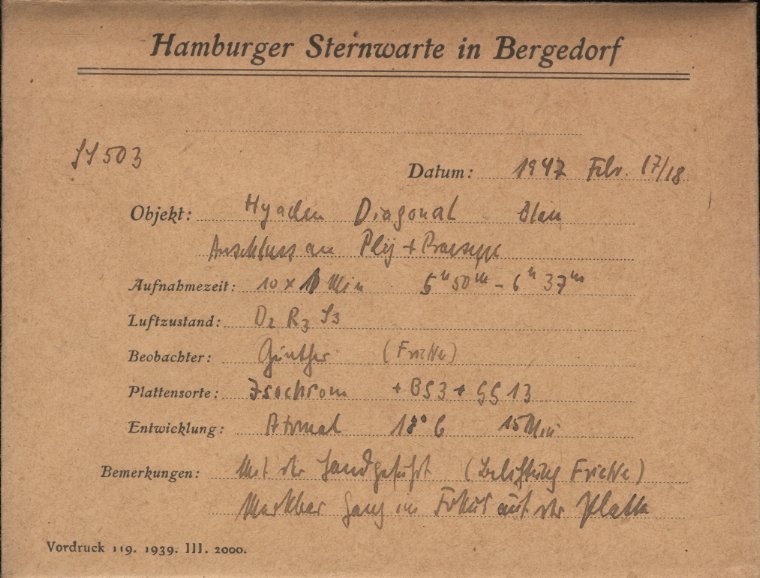 Hamburger Sternwarte in Bergedorf
Datum: 1947 Febr. 17/18
Objekt: Hyaden Diagonal Blau
Anschluss an Plej + Praesepe
Aufnahmezeit: 10 x 1 Min 5ʰ50ᵐ – 6ʰ37ᵐ
Luftzustand: D2 R3 S3
Beobachter: Günther (Fricke)
Plattensorte: Isochrom + BG3 + GG 13
Entwicklung: Atomal 18° C 15 Min
Bemerkungen: Mit der Hand geführt (Belichtung Fricke)
Merkbar Gang im Fokus auf der Platte
Vordruck 119. 1939. III. 2000.